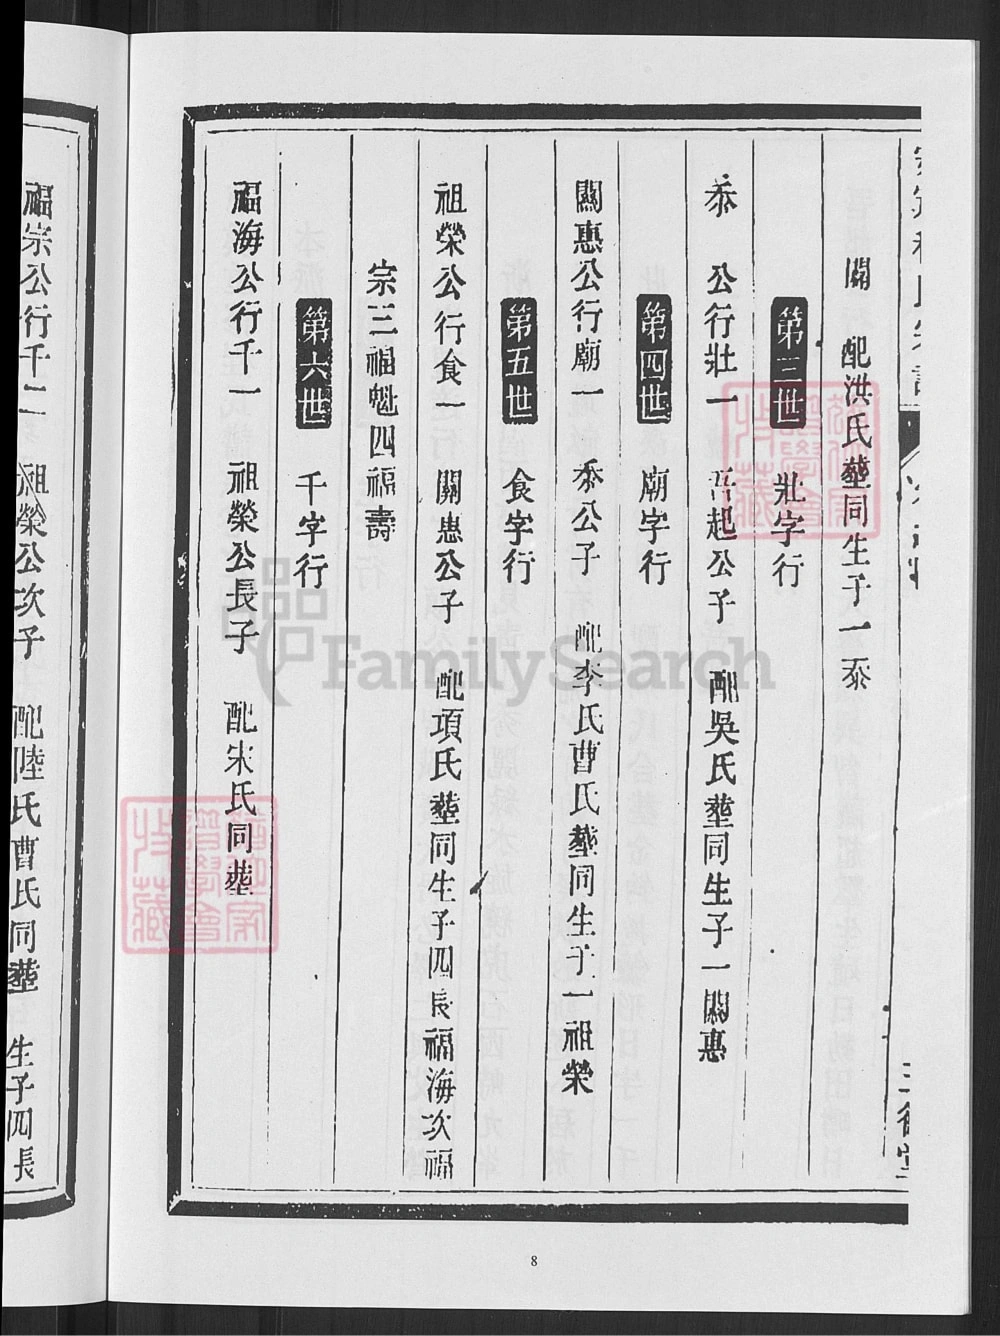 關 配洪氏塟同生子一忝
第三世 壯字行
忝 公行壯一 吾起公子 配吳氏塟同生子一關惠
第四世 廟字行
關惠公行廟一 忝公子 配李氏曹氏塟同生子一祖榮
第五世 食字行
祖榮公行食一 關惠公子 配項氏塟同生子四長福海次福
宗三福魁四福壽
第六世 千字行
福海公行千一 祖榮公長子 配宋氏同塟
福宗公行千二 祖榮公次子 配陸氏曹氏同塟 生子四長
8
FamilySearch